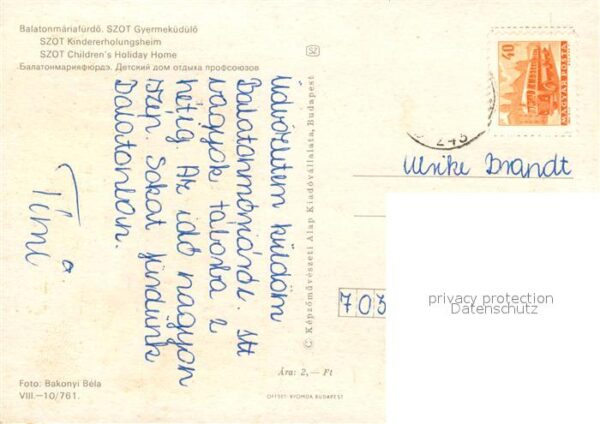 Balatonmáriafürdő. SZOT Gyermeküdülő
SZOT Kindererholungsheim
SZOT Children's Holiday Home
Балатонмариафюрдэ. Детский дом отдыха профсоюзов
Üdvözletem küldöm
Balatonmáriáról. Itt
vagyok táborba 2
hétig. Az idő nagyon
szép. Sokat fürdünk
Balatonban.
Timi
Foto: Bakonyi Béla
VIII.—10/761.
Ára: 2,— Ft
OFFSET-NYOMDA BUDAPEST
© Képzőművészeti Alap Kiadóvállalata, Budapest
SZ
40
MAGYAR POSTA
245
Ulrike Brandt
703
privacy protection
Datenschutz